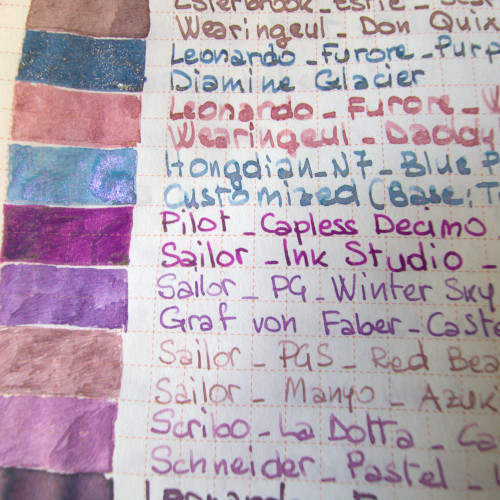 Esterbrook_Estie_
Wearingeul_Don Quix
Leonardo_Furore_Purp
Diamine Glacier
Leonardo_Furore_
Wearingeul_Daddy
Hongdian_N7_Blue P
Customized (Base: T
Pilot_Capless Decimo
Sailor_Ink Studio_
Sailor_PG_Winter Sky
Graf von Faber-Caste
Sailor_PGS_Red Bea
Sailor_Manyo_Azuk
Scribo_La Dotta_Ca
Schneider_Pastel_
Leonardo